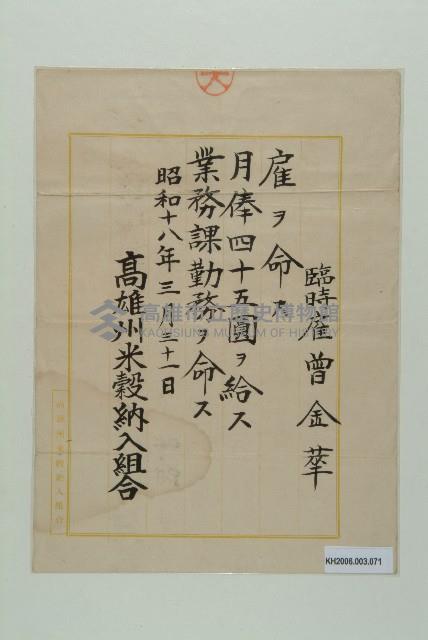 臨時雇曾金華
雇ヲ命ス
月俸四十五圓ヲ給ス
業務課勤務ヲ命ス
昭和十八年三月三十一日
高雄州米穀納入組合
高雄州米穀納入組合
高雄市立歷史博物館
KAOHSIUNG MUSEUM OF HISTORY
KH2006.003.071